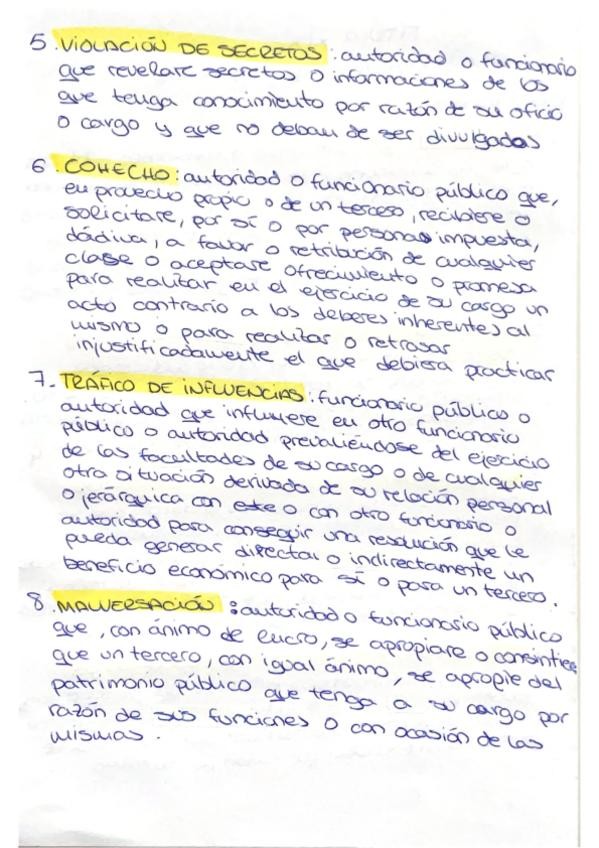 5. VIOLACIÓN DE SECRETOS: autoridad o funcionario
que revelare secretos o informaciones de los
que tenga conocimiento por razón de su oficio
o cargo y que no deban de ser divulgadas
6. COHECHO: autoridad o funcionario público que,
en provecho propio o de un tercero, recibiere o
solicitare, por sí o por persona impuesta,
dádiva, a favor o retribución de cualquier
clase o aceptase ofrecimiento o promesa
para realizar en el ejercicio de su cargo un
acto contrario a los deberes inherentes al
mismo o para realizar o retrasar
injustificadamente el que debiera practicar
7. TRÁFICO DE INFLUENCIAS: funcionario público o
autoridad que influyese en otro funcionario
público o autoridad prevaliéndose del ejercicio
de las facultades de su cargo o de cualquier
otra situación derivada de su relación personal
o jerárquica con este o con otro funcionario o
autoridad para conseguir una resolución que le
pueda generar directa o indirectamente un
beneficio económico para sí o para un tercero.
8. MALVERSACIÓN: autoridad o funcionario público
que, con ánimo de lucro, se apropiare o consintiere
que un tercero, con igual ánimo, se apropie del
patrimonio público que tenga a su cargo por
razón de sus funciones o con ocasión de las
mismas.